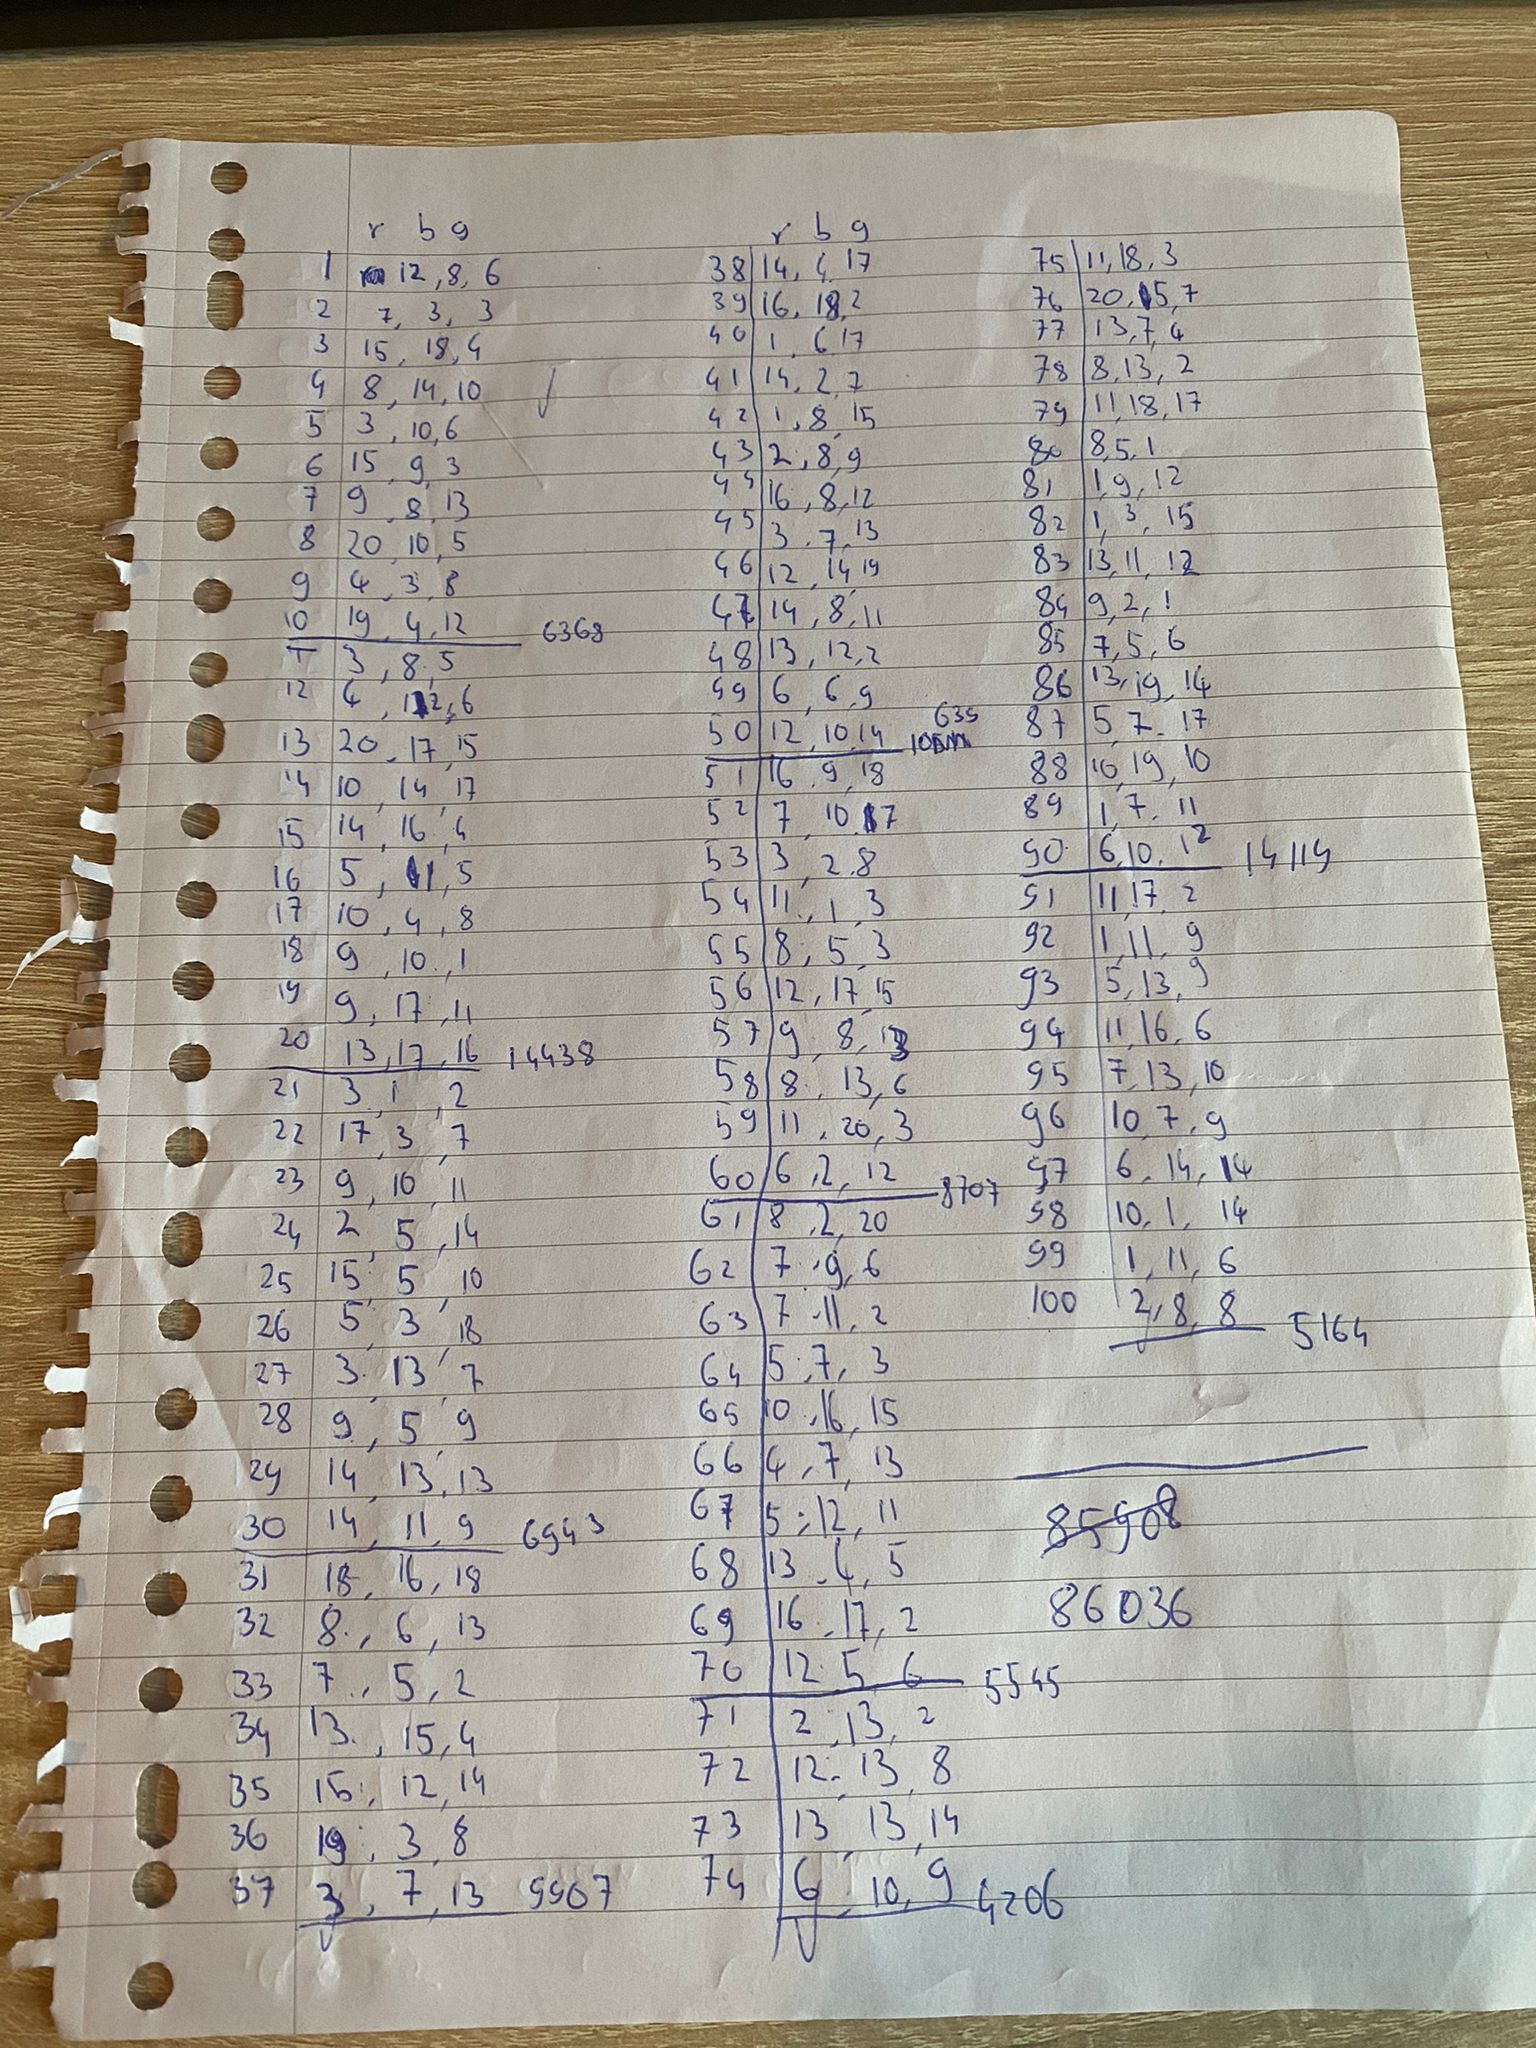 r b g
1 12, 8, 6
2 7, 3, 3
3 15, 18, 4
4 8, 14, 10
5 3, 10, 6
6 15, 9, 3
7 9, 8, 13
8 20, 10, 5
9 4, 3, 8
10 19, 4, 12 6368
3, 8, 5
12 4, 12, 6
13 20, 17, 15
14 10, 14, 17
15 14, 16, 4
16 5, 11, 5
17 10, 4, 8
18 9, 10, 1
19 9, 17, 11
20 13, 17, 16 14438
21 3, 1, 2
22 17, 3, 7
23 9, 10, 11
24 2, 5, 14
25 15, 5, 10
26 5, 3, 18
27 3, 13, 7
28 9, 5, 9
29 14, 13, 13
30 14, 11, 9 6943
31 18, 16, 18
32 8, 6, 13
33 7, 5, 2
34 13, 15, 4
35 15, 12, 14
36 19, 3, 8
37 3, 7, 13 9907
r b g
38 14, 4, 17
39 16, 18, 2
40 1, 6, 17
41 14, 2, 7
42 1, 8, 15
43 2, 8, 9
44 16, 8, 12
45 3, 7, 13
46 12, 14, 19
47 14, 8, 11
48 13, 12, 2
49 6, 6, 9
50 12, 10, 14
51 16, 9, 18
52 7, 10, 17
53 3, 2, 8
54 11, 1, 3
55 8, 5, 3
56 12, 17, 15
57 9, 8, 13
58 8, 13, 6
59 11, 20, 3
60 6, 2, 12 8707
61 8, 2, 20
62 7, 9, 6
63 7, 11, 2
64 5, 7, 3
65 10, 16, 15
66 4, 7, 13
67 5, 12, 11
68 13, 4, 5
69 16, 17, 2
70 12, 5, 6 5545
71 2, 13, 2
72 12, 13, 8
73 13, 13, 14
74 6, 10, 9 4206
75 11, 18, 3
76 20, 15, 7
77 13, 7, 4
78 8, 13, 2
79 11, 18, 17
80 8, 5, 1
81 1, 9, 12
82 1, 3, 15
83 13, 11, 12
84 9, 2, 1
85 7, 5, 6
86 13, 19, 14
87 5, 7, 17
88 10, 19, 10
89 1, 7, 11
90 6, 10, 12 14114
91 11, 17, 2
92 1, 11, 9
93 5, 13, 9
94 11, 16, 6
95 7, 13, 10
96 10, 7, 9
97 6, 14, 14
98 10, 1, 14
99 1, 11, 6
100 2, 8, 8 5164
85908
86036